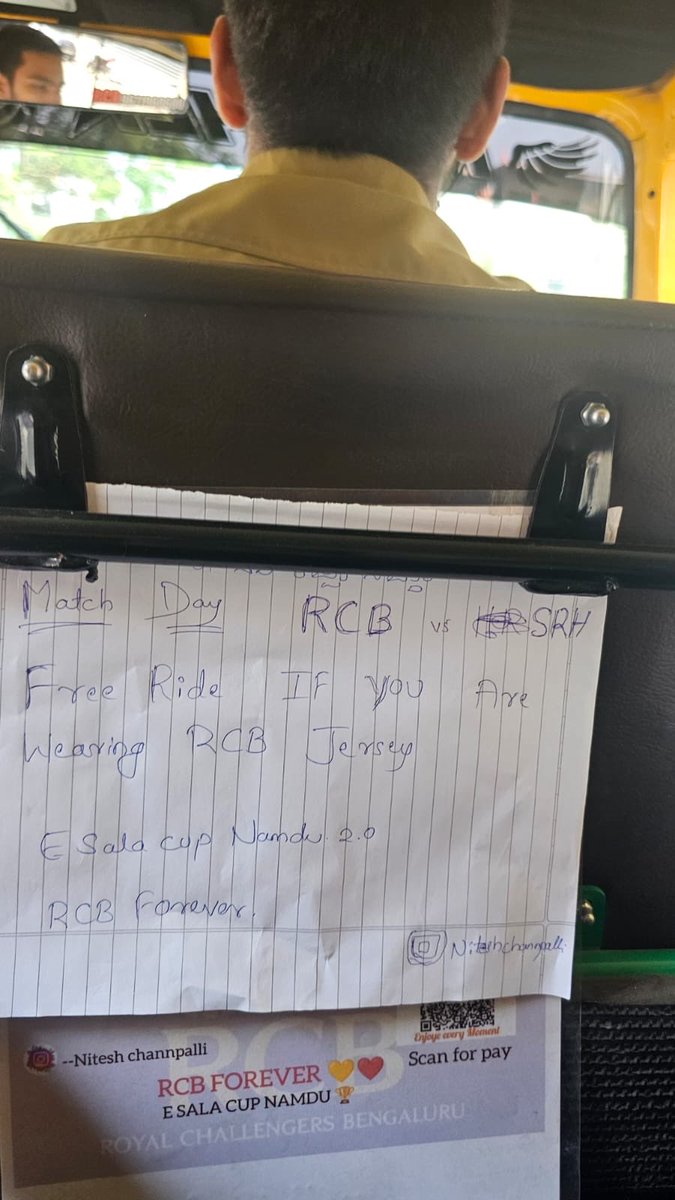 Match Day RCB vs SRH
Free Ride IF you Are
Wearing RCB Jersey
E Sala cup Namdu 2.0
RCB Forever.
Niteshchannpalli
Enjoye every Moment
--Nitesh channpalli
Scan for pay
RCB FOREVER 💛❤️
E SALA CUP NAMDU 🏆
RCB
ROYAL CHALLENGERS BENGALURU